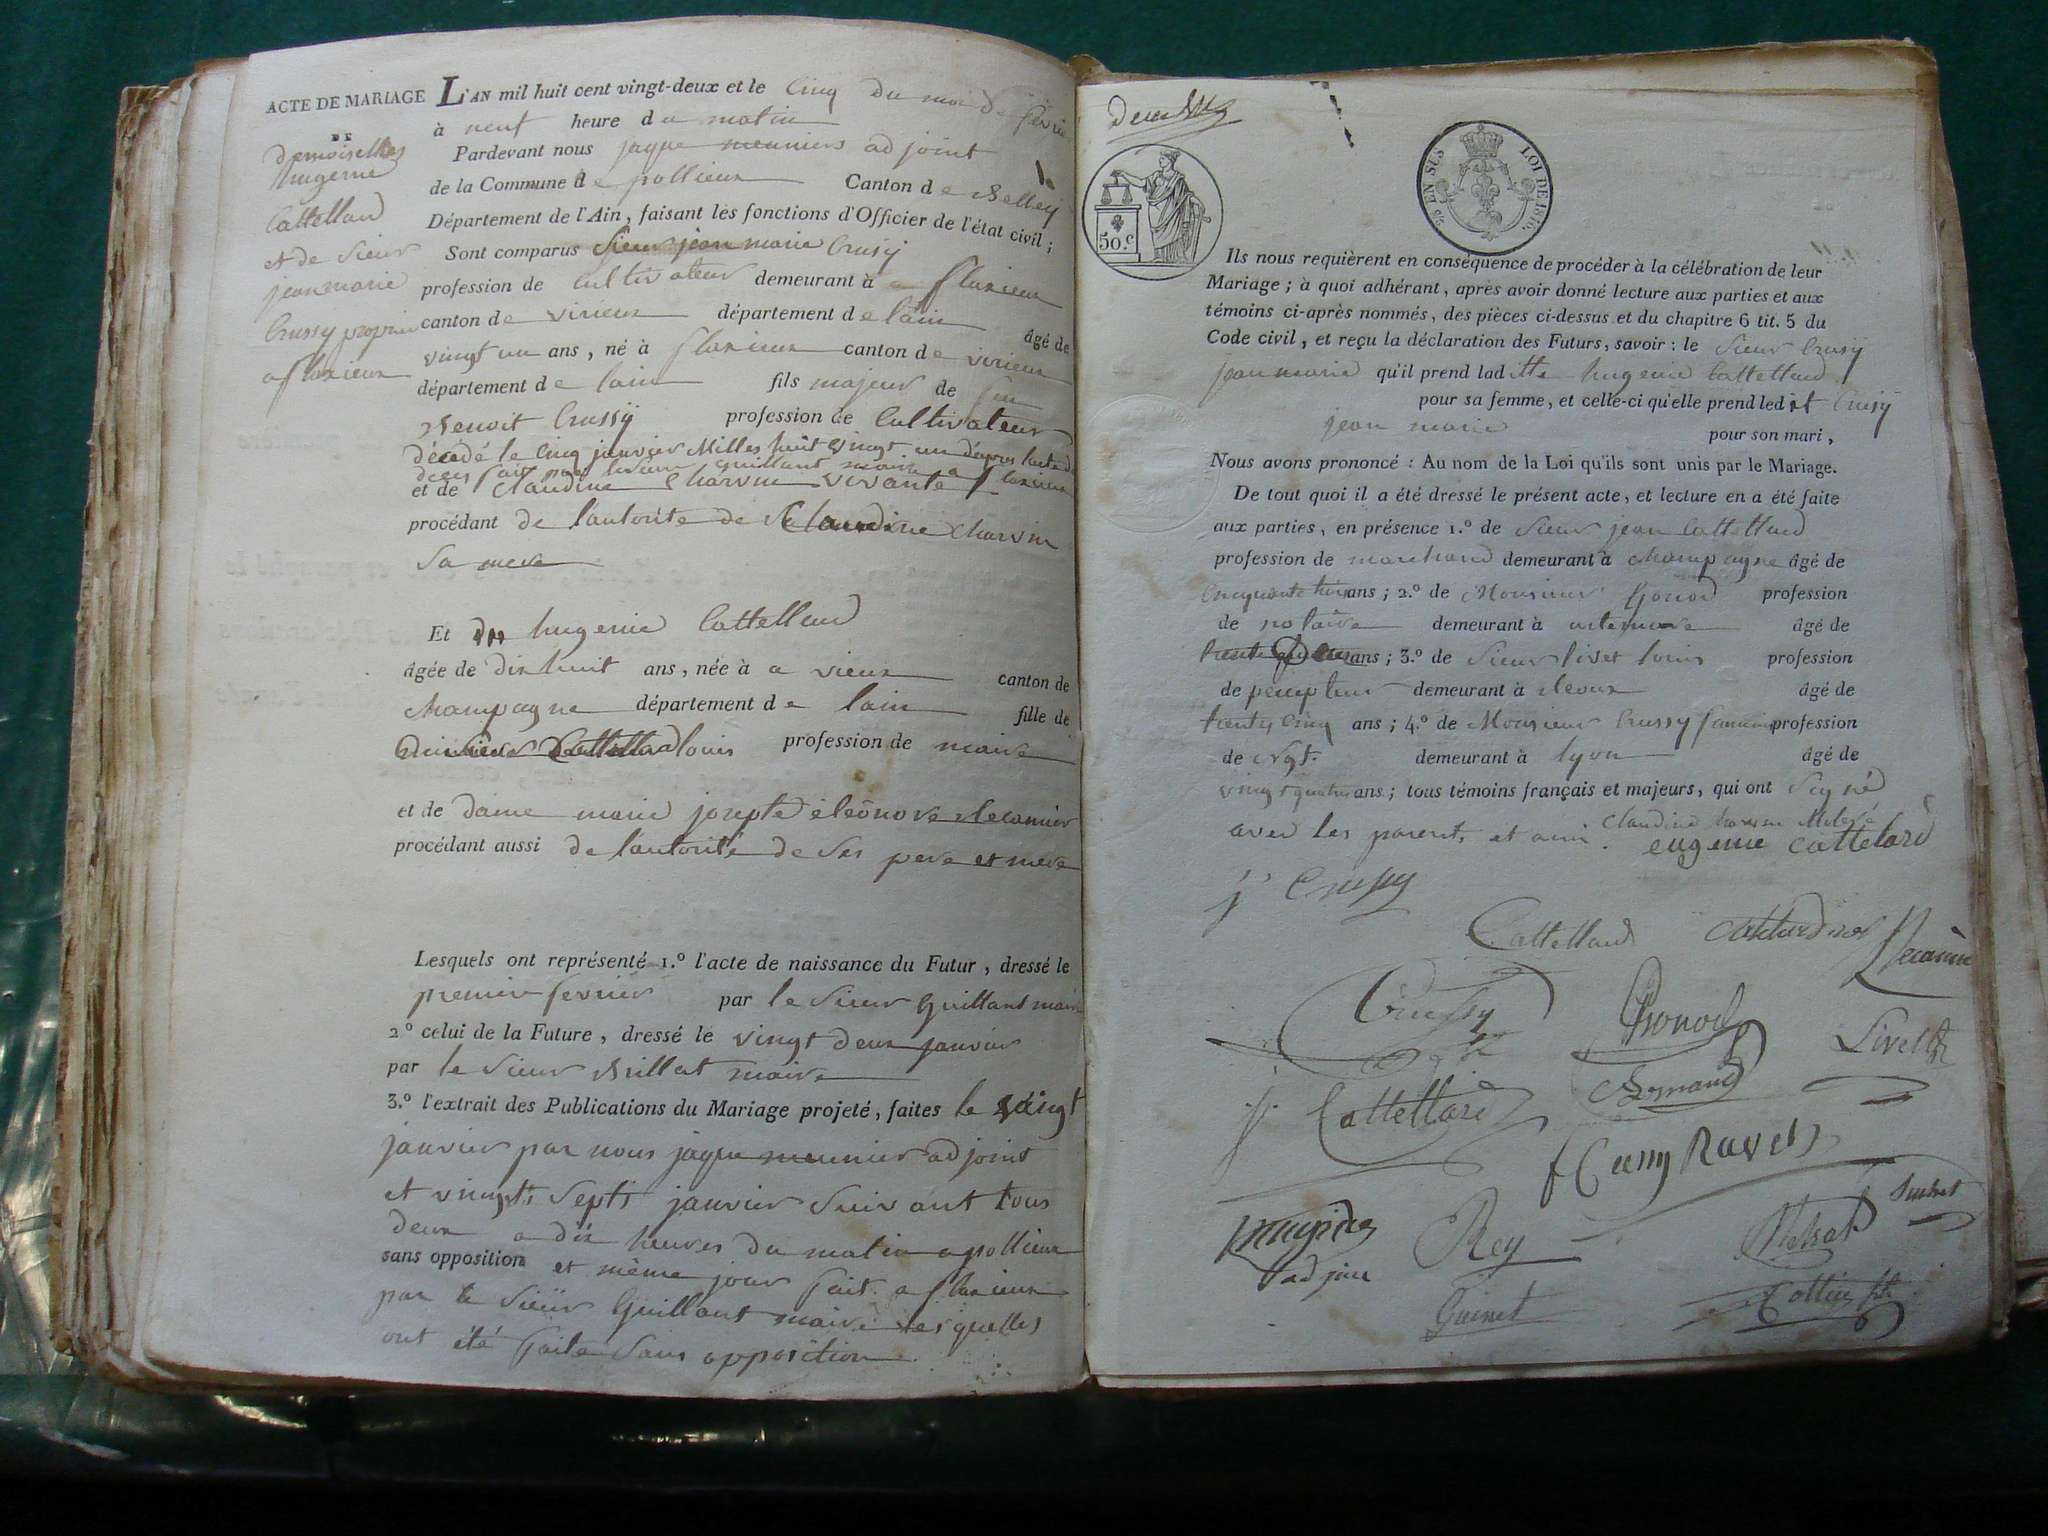 ACTE DE MARIAGE
DE
demoiselles
hugenie
Cattelland
et de Sieur
jean marie
Crussy
a flaxieux
L'AN mil huit cent vingt-deux et le Cinq du moi de fevrie
à neuf heure du matin
Pardevant nous jaque meuniers adjoint
de la Commune de pollieux Canton de Belley
Département de l'Ain, faisant les fonctions d'Officier de l'état civil ;
Sont comparus Sieur jean marie Crusÿ
profession de Cultivateur demeurant à a flaxieux
canton de virieux département de lain âgé de
vingt un ans, né à flaxieux canton de virieux
département de lain fils majeur de feu
Benoit Crussÿ profession de Cultivateur
décédé le cinq janvier Milles huit vingt un d'apres lacte de
deces fait par le sieur guillant maire a flaxieux
et de Claudine Charvin vivante
procédant de lautorite de Claudine Charvin
Sa mere
Et hugenie Cattelland
âgée de dix huit ans, née à a vieux canton de
Champagne département de lain fille de
louis profession de maire
et de dame marie josepte éléonore Decanier
procédant aussi de lautorité de Ses pere et mere
Lesquels ont représenté 1.º l'acte de naissance du Futur, dressé le
premier fevrier par le Sieur Guillant maire
2º celui de la Future, dressé le vingt deux janvier
par le Sieur Brillat maire
3.º l'extrait des Publications du Mariage projeté, faites le vaingt
janvier par nous jaque meunier adjoint
et vingts septs janvier Suivant tous
deux a dix heures du matin a pollieux
sans opposition et même jour fait a flaxieux
par le Sieür Guillant maire lesquelles
ont été faite Sans opposition
50.c
25 EN SUS
LOI DE 1816.
Ils nous requièrent en conséquence de procéder à la célébration de leur
Mariage ; à quoi adhérant, après avoir donné lecture aux parties et aux
témoins ci-après nommés, des pièces ci-dessus et du chapitre 6 tit. 5 du
Code civil, et reçu la déclaration des Futurs, savoir : le Sieur Crusÿ
jean marie qu'il prend laditte hugenie Cattelland
pour sa femme, et celle-ci qu'elle prend ledit Crusÿ
jean marie pour son mari,
Nous avons prononcé : Au nom de la Loi qu'ils sont unis par le Mariage.
De tout quoi il a été dressé le présent acte, et lecture en a été faite
aux parties, en présence 1.º de Sieur jean Cattelland
profession de marchand demeurant à Champagne âgé de
Cinquante trois ans ; 2.º de Monsieur Gonod profession
de notaire demeurant à artemare âgé de
ans ; 3.º de Sieur livet louis profession
de percepteur demeurant à Beoux âgé de
trente cinq ans ; 4.º de Monsieur Crussy profession
de demeurant à lyon âgé de
vingt quatre ans ; tous témoins français et majeurs, qui ont Signé
avec les parents et ami.
eugenie cattelard
j Crussy
Cattelland
Crussy
Gonod
Livet
j. Cattelland
Ravets
adjoint
Rey
Guinet